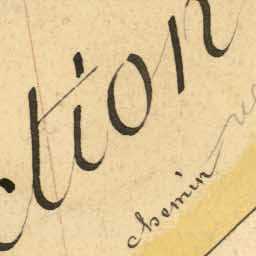 ction
chemin